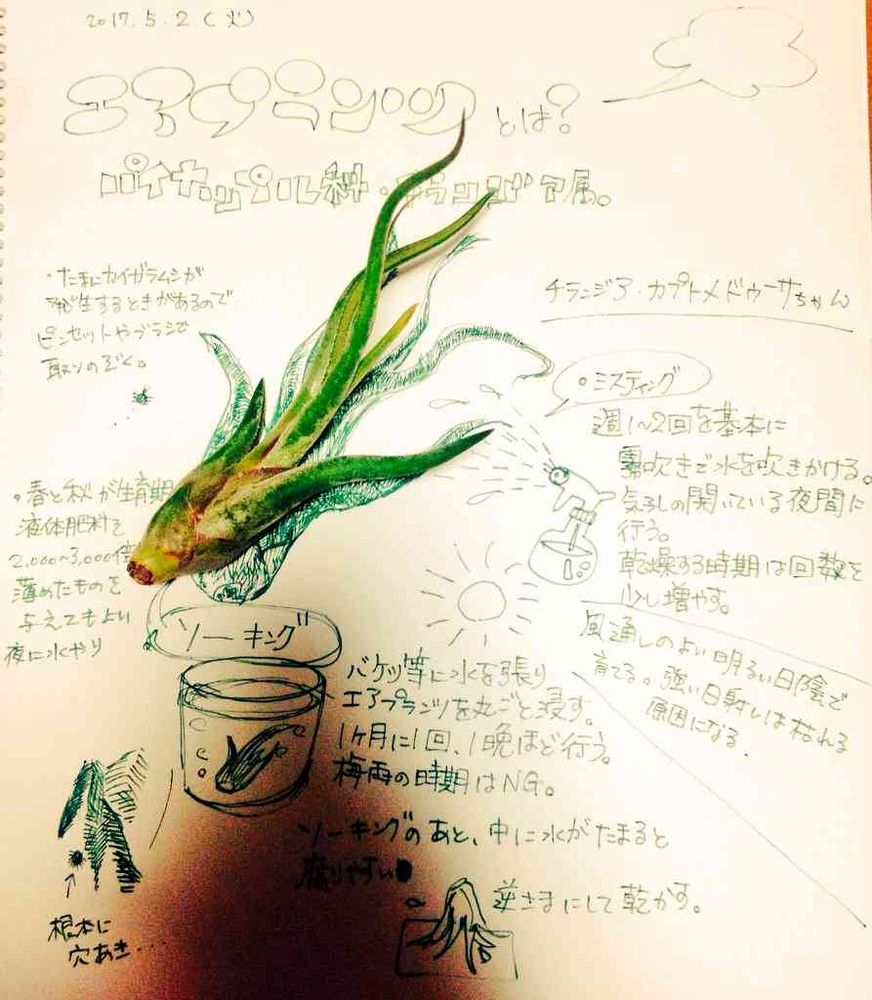 2017.5.2(火)
エアプランツとは?
パイナップル科・チランジア属。
・たまにカイガラムシが
発生するときがあるので
ピンセットやブラシで
取りのぞく。
チランジア・カプトメドゥーサちゃん
○ミスティング
週1~2回を基本に
霧吹きで水を吹きかける。
気孔の開いている夜間に
行う。
乾燥する時期は回数を
少し増やす。
風通しのよい明るい日陰で
育てる。強い日射しは枯れる
原因になる.
○春と秋が生育期
液体肥料を
2,000~3,000倍
薄めたものを
与えてもよい
夜に水やり
ソーキング
バケツ等に水を張り
エアプランツを丸ごと浸す。
1ヶ月に1回、1晩ほど行う。
梅雨の時期はNG。
ソーキングのあと、中に水がたまると
腐りやすい
逆さまにして乾かす。
根本に
穴あき...